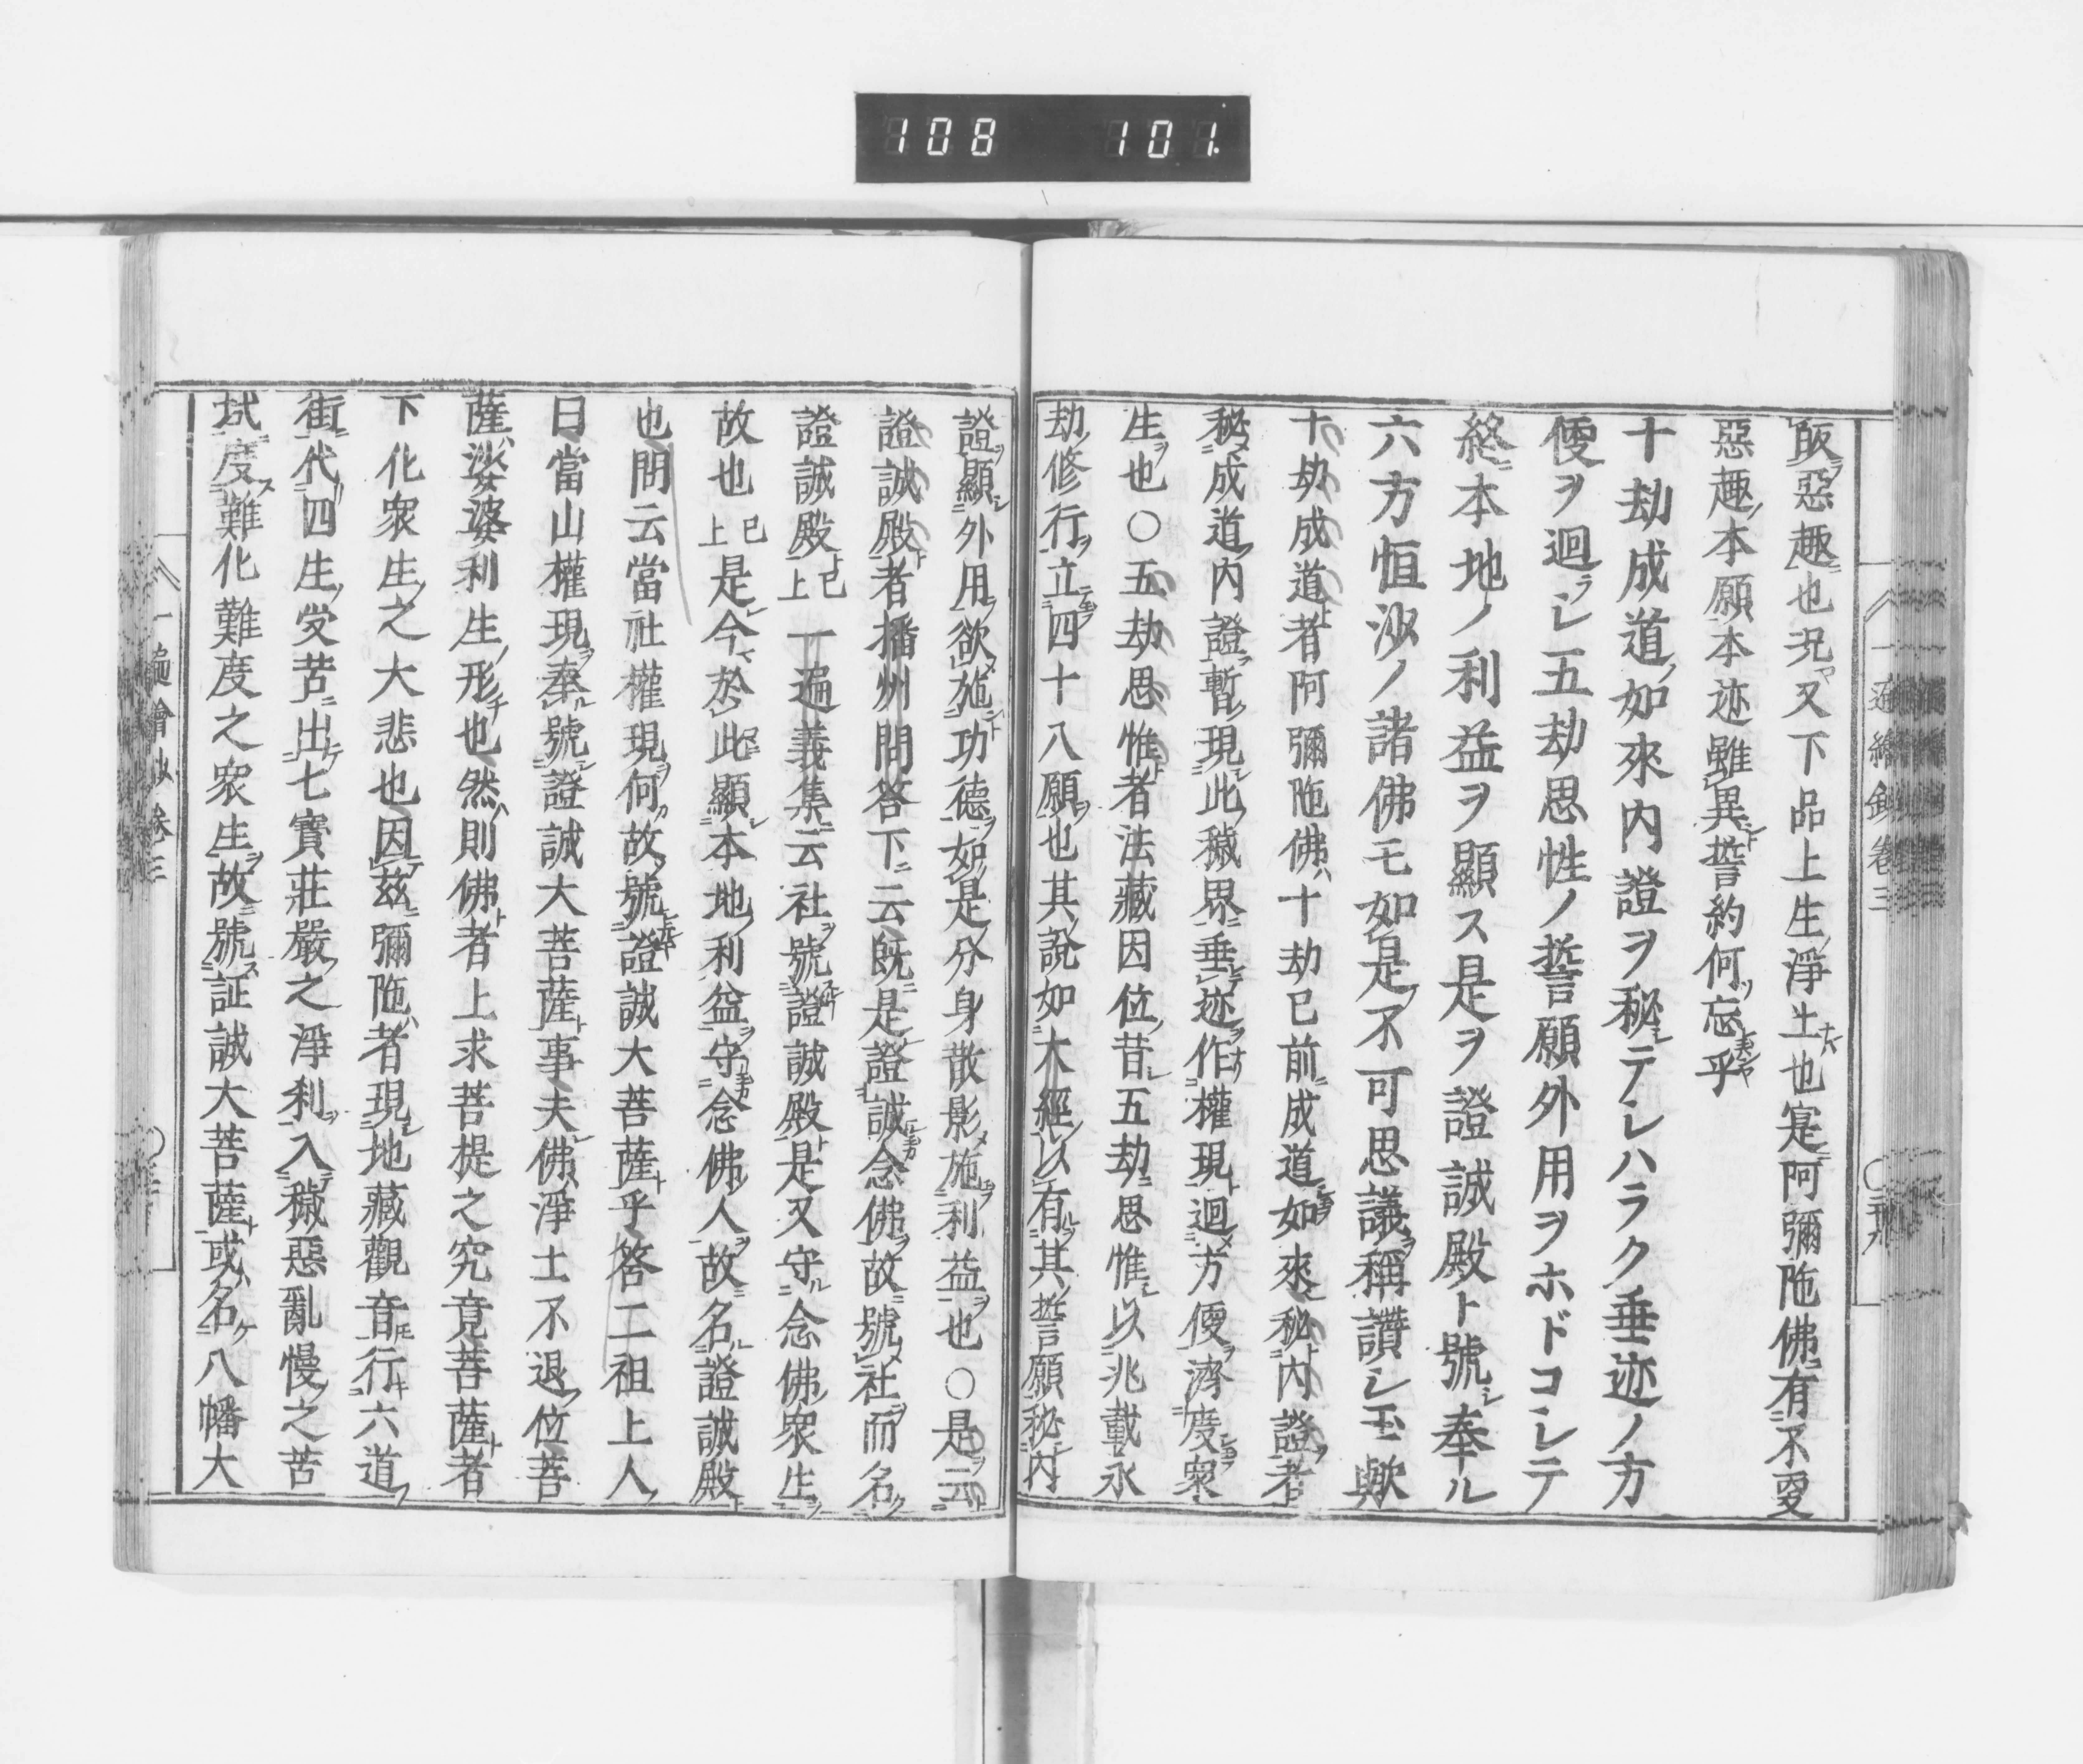 108 101
一遍繪鈔卷三
皈惡趣也况又下品上生淨土也寔阿彌陁佛有不変
惡趣本願本迹雖異誓約何忘乎
十劫成道如來內證ヲ秘テレハラク垂迹ノ方
便ヲ迴シ五劫思性ノ誓願外用ヲホドコシテ
終本地ノ利益ヲ顯ス是ヲ證誠殿ト號シ奉ル
六方恒沙ノ諸佛モ如是不可思議稱讚シ玉歟
十劫成道者阿彌陁佛十劫已前成道如來秘內證者
秘成道內證暫現此穢界垂迹作權現迴方便濟度衆
生也○五劫思惟者法藏因位昔五劫思惟以兆載永
劫修行立四十八願也其說如大經以有其誓願秘內
證顯外用欲施功德如是分身散影施利益也○是云
證誠殿者播州問答下云既是證誠念佛故號社而名
證誠殿已上一遍義集云社號證誠殿是又守念佛衆生
故也已上是今於此顯本地利益守念佛人故名證誠殿
也問云當社權現何故號證誠大菩薩乎答二祖上人
曰當山權現奉號證誠大菩薩事夫佛淨土不退位菩
薩娑婆利生形也然則佛者上求菩提之究竟菩薩者
下化衆生之大悲也因茲彌陁者現地藏觀音行六道
街代四生受苦出七寶莊嚴之淨刹入穢惡亂慢之苦
域度難化難度之衆生故號証誠大菩薩或名八幡大
一遍繪鈔卷三